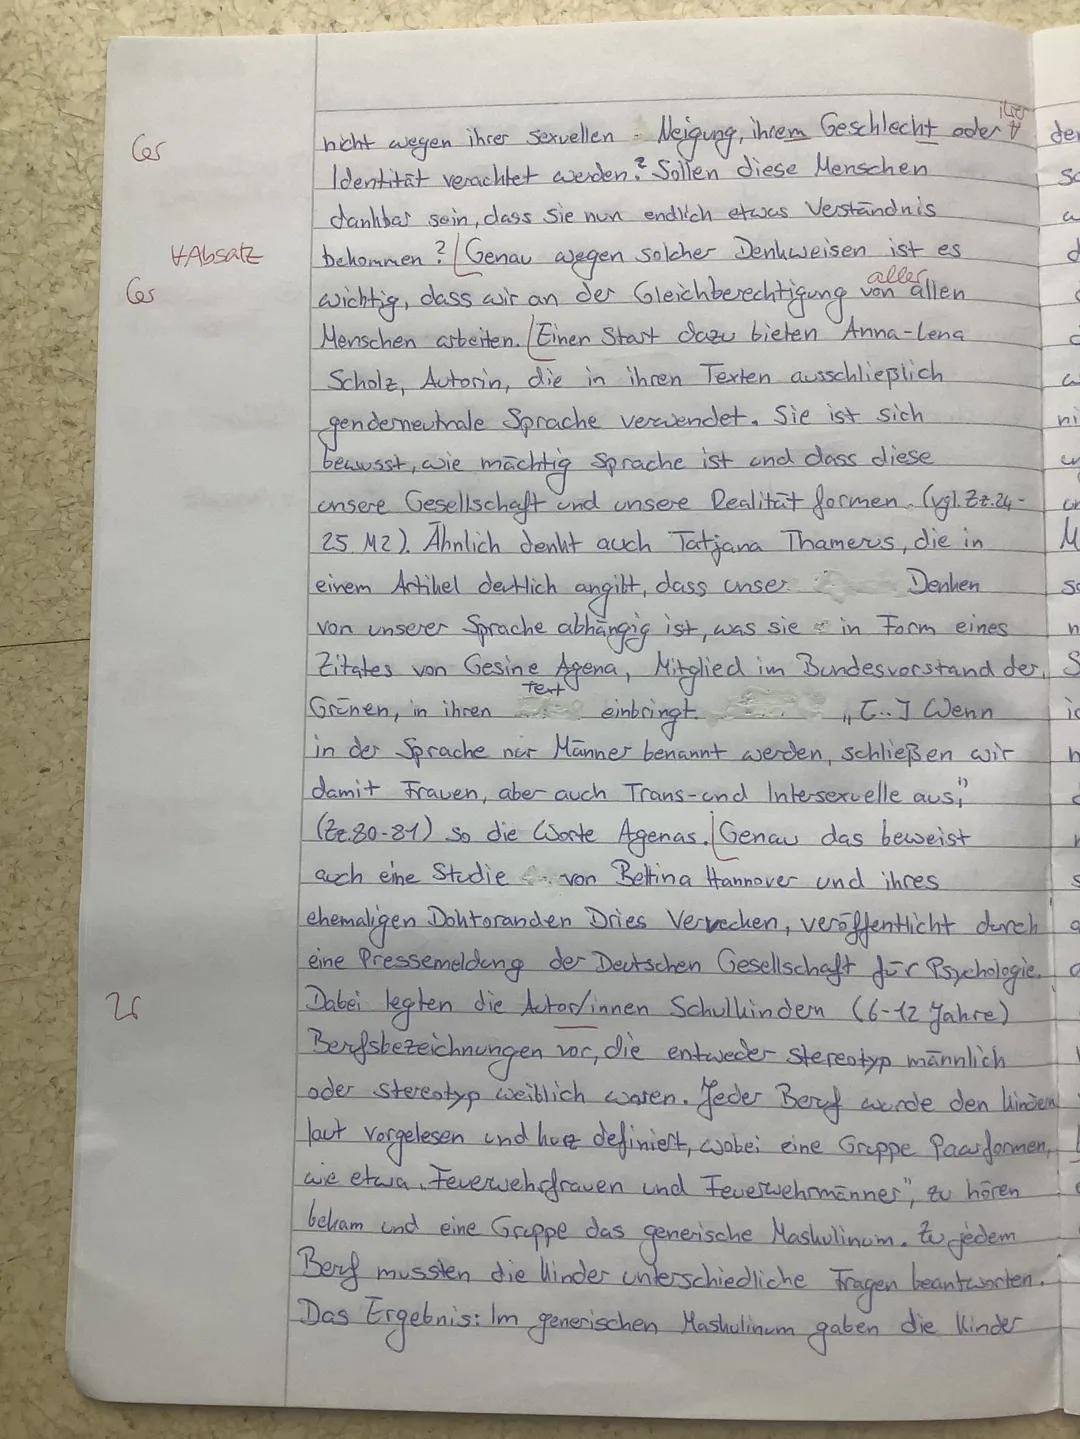 ihrer
Ges nicht wegen ihrer sexuellen Neigung, ihrem Geschlecht oder
Identität verachtet werden? Sollen diese Menschen
dankbar sein, dass sie nun endlich etwas Verständnis
Absatz bekommen? Genau wegen solcher Denkweisen ist es
aller
Ges wichtig, dass wir an der Gleichberechtigung von allen
Menschen arbeiten. Einen Start dazu bieten Anna-Lena
Scholz, Autorin, die in ihren Texten ausschließlich
genderneutrale Sprache verwendet. Sie ist sich
bewusst, wie mächtig Sprache ist und dass diese
unsere Gesellschaft und unsere Realität formen. (vgl. Zz. 24-
25 M2). Ähnlich denkt auch Tatjana Thamerus, die in
einem Artikel deutlich angibt, dass unser Denken
von unserer Sprache abhängig ist, was sie in Form eines
Zitates von Gesine Agena, Mitglied im Bundesvorstand der
Text
Grünen, in ihren einbringt. „[...] Wenn
in der Sprache nur Männer benannt werden, schließen wir
damit Frauen, aber auch Trans- und Intersexuelle aus,"
(Zz. 80-81) so die Worte Agenas. Genau das beweist
auch eine Studie von Bettina Hannover und ihres
ehemaligen Doktoranden Dries Vervecken, veröffentlicht durch
eine Pressemeldung der Deutschen Gesellschaft für Psychologie.
Dabei legten die Autor/innen Schulkindern (6-12 Jahre)
Berfsbezeichnungen vor, die entweder stereotyp männlich
oder stereotyp weiblich waren. Jeder Beruf wurde den Kindern
laut vorgelesen und kurz definiert, wobei eine Gruppe Paarformen,
wie etwa „Feuerwehrfrauen und Feuerwehrmänner", zu hören
bekam und eine Gruppe das generische Maskulinum. Zu jedem
Beruf mussten die Kinder unterschiedliche Fragen beantworten.
Das Ergebnis: Im generischen Maskulinum gaben die Kinder